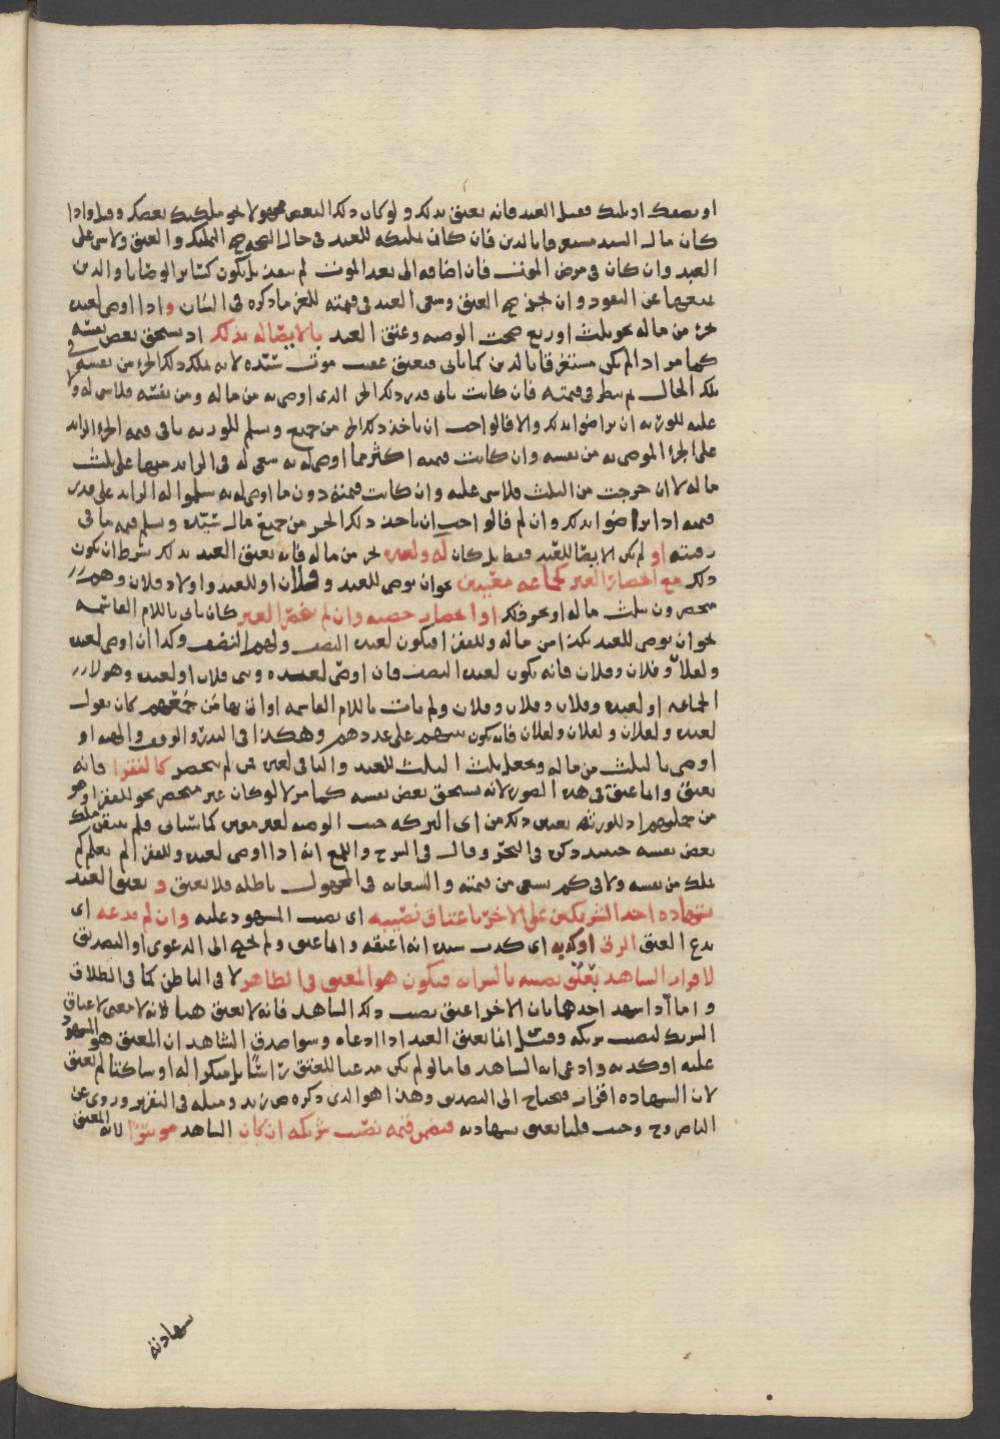 او نصفك او ثلثك فقبل العبد فانه يعتق بذلك ولو كان ذلك البعض مجهولا نحو ملكتك بعضك وقيل واذا
كان مال السيد مستغرقا بالدين فان كان تمليكه للعبد في حال الصحة صح التمليك والعتق ولا شي على
العبد وان كان في مرض الموت فان اضافه الى بعد الموت لم ينفذ بل يكون كسائر الوصايا والدين
يمنعها عن النفوذ وان نجز صح العتق وسعى العبد في قيمته للغرما ذكره في البيان واذا اوصى لعبده
بجزء من ماله نحو ثلث او ربع صحت الوصيه وعتق العبد بالايصا له بذلك اذ يستحق بعض نفسه
كما مر اذا لم يكن مستغرقا بالدين كما ياتي فيعتق عقيب موت سيده لانه يملك ذلك الجزء من نفسه في
تلك الحال ثم ينظر في قيمته فان كانت ياتي قدر ذلك الجزء الذي اوصى به من ماله ومن نفسه فلا شي له ولا
عليه للورثه ان تراضوا بذلك والا فالواجب ان ياخذ ذلك الجزء من جميع ويسلم للورثه باقي قيمه الجزء الزايد
على الجزء الموصى به من نفسه وان كانت قيمته اكثر مما اوصى له به سعى له في الزايد منها على ثلث
ماله لا ان خرجت من الثلث فلا شي عليه وان كانت قيمته دون ما اوصى له به سلموا له الزايد على قدر
قيمته اذا تراضوا بذلك وان لم فالواجب ان ياخذ ذلك الجزء من جميع مال سيده ويسلم قيمه ما في
رقبته او لم يكن الايصا للعبد فقط بل كان له ولغيره بجزء من ماله فانه يعتق العبد بذلك بشرط ان يكون
ذلك مع انحصار الغير كجماعه معينين نحو ان يوصي للعبد وفلان او للعبد واولاد فلان وهم
منحصرون بثلث ماله او نحو ذلك او انحصار حصته وان لم ينحصر الغير كان ياتي باللام القاسمه
نحو ان يوصي للعبد بكذا من ماله وللفقرا فيكون لعبده النصف ولهم النصف وكذا ان اوصى لعبده
ولعلا وفلان وفلان فانه يكون لعبده النصف فان اوصى لعبده وبني فلان او لعبده وهولاء
الجماعه او لعبده وفلان وفلان وفلان ولم يات باللام القاسمه او اتى بها من جميعهم كان يقول
لعبده ولفلان ولفلان ولفلان فانه يكون بينهم على عددهم وهكذا في النذر والوقف والهبه او
اوصى بالثلث من ماله وجعل ثلث الثلث للعبد والباقي لغيره ممن لم ينحصر كالفقرا فانه
يعتق وانما عتق في هذه الصور لانه يستحق بعض نفسه كما مر لا لو كان غير منحصر نحو للفقرا وهو
من جملتهم اذ للورثه تعيين ذلك من اي التركه حيث الوصيه لغير معين كما سياتي فلم يتيقن ملك
بعض نفسه حينئذ ذكره في البحر وقال في الشرح واللمع انه اذا اوصى لعبده وللفقرا لم يعلم كم
يملك من نفسه ولا في كم يسعى من قيمته والسعايه في المجهول باطله فلا يعتق و يعتق العبد
بشهاده احد الشريكين على الاخر باعتاق نصيبه اي نصيب المشهود عليه وان لم يدعه اي
يدع العتق الرق او كذبه اي كذب سيده انه اعتقه وانما عتق ولم يحتج الى الدعوى او التصديق
لاقرار الشاهد بعتق نصيبه بالسرايه فيكون هو المعتق في الظاهر لا في الباطن كما في الطلاق
واما اذا شهد احدهما بان الاخر اعتق نصيب ذلك الشاهد فانه لا يعتق هنا لانه لا معنى لاعتاق
الشريك لنصيب شريكه وقيل انما يعتق العبد اذا ادعاه وسوا صدق الشاهد ان المعتق هو المشهود
عليه او كذبه وادعى انه الشاهد فاما لو لم يكن مدعيا للعتق راسا بل منكرا له او ساكتا لم يعتق
لان الشهاده اقرار فيحتاج الى التصديق وهذا هو الذي ذكره ص زيد ومثله في التقرير وروي عن
الناصر وح وحيث قلنا يعتق بشهادته فيضمن قيمه نصيب شريكه ان كان الشاهد موسرا لانه المعتق
شهادته